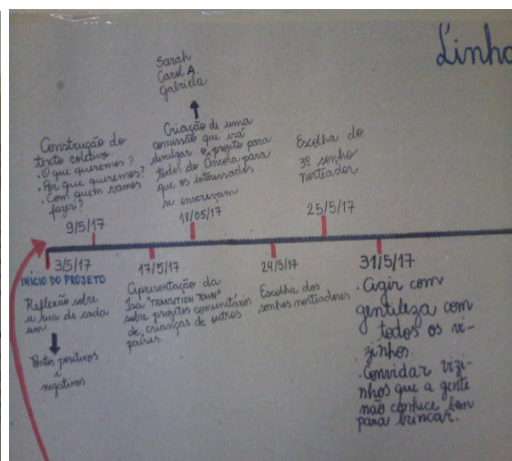 Linha
Sarah
Carol A.
Gabriela
Construção do
texto coletivo
.O que queremos?
.Por que queremos?
.Com quem vamos
fazer?
9/5/17
Criação de uma
comissão que irá
divulgar o projeto para
todos do Omuna para
que os interessados
se inscrevam
18/05/17
Escolha do
3º sonho
norteador
25/5/17
3/5/17
INÍCIO DO PROJETO
Reflexão sobre
a rua de cada
um.
Pontos positivos
e
negativos
17/5/17
Apresentação da
Isa "TRANSITION TOWN"
sobre projetos comunitários
de crianças de outros
países.
24/5/17
Escolha dos
sonhos norteadores
31/5/17
.Agir com
gentileza com
todos os vi-
zinhos
.Convidar vizi-
nhos que a gente
não conhece bem
para brincar.